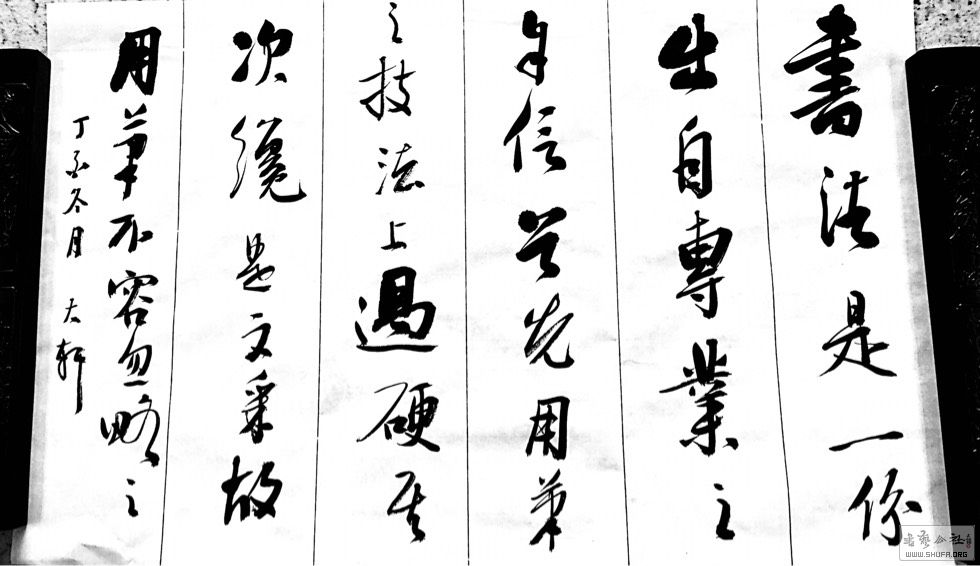 書法是一份
出自專業之
自信首先用筆
之技法上過硬其
次纔是文采故
用筆不容忽略之
丁冬月 大軒
書藝公社
WWW.SHUFA.ORG